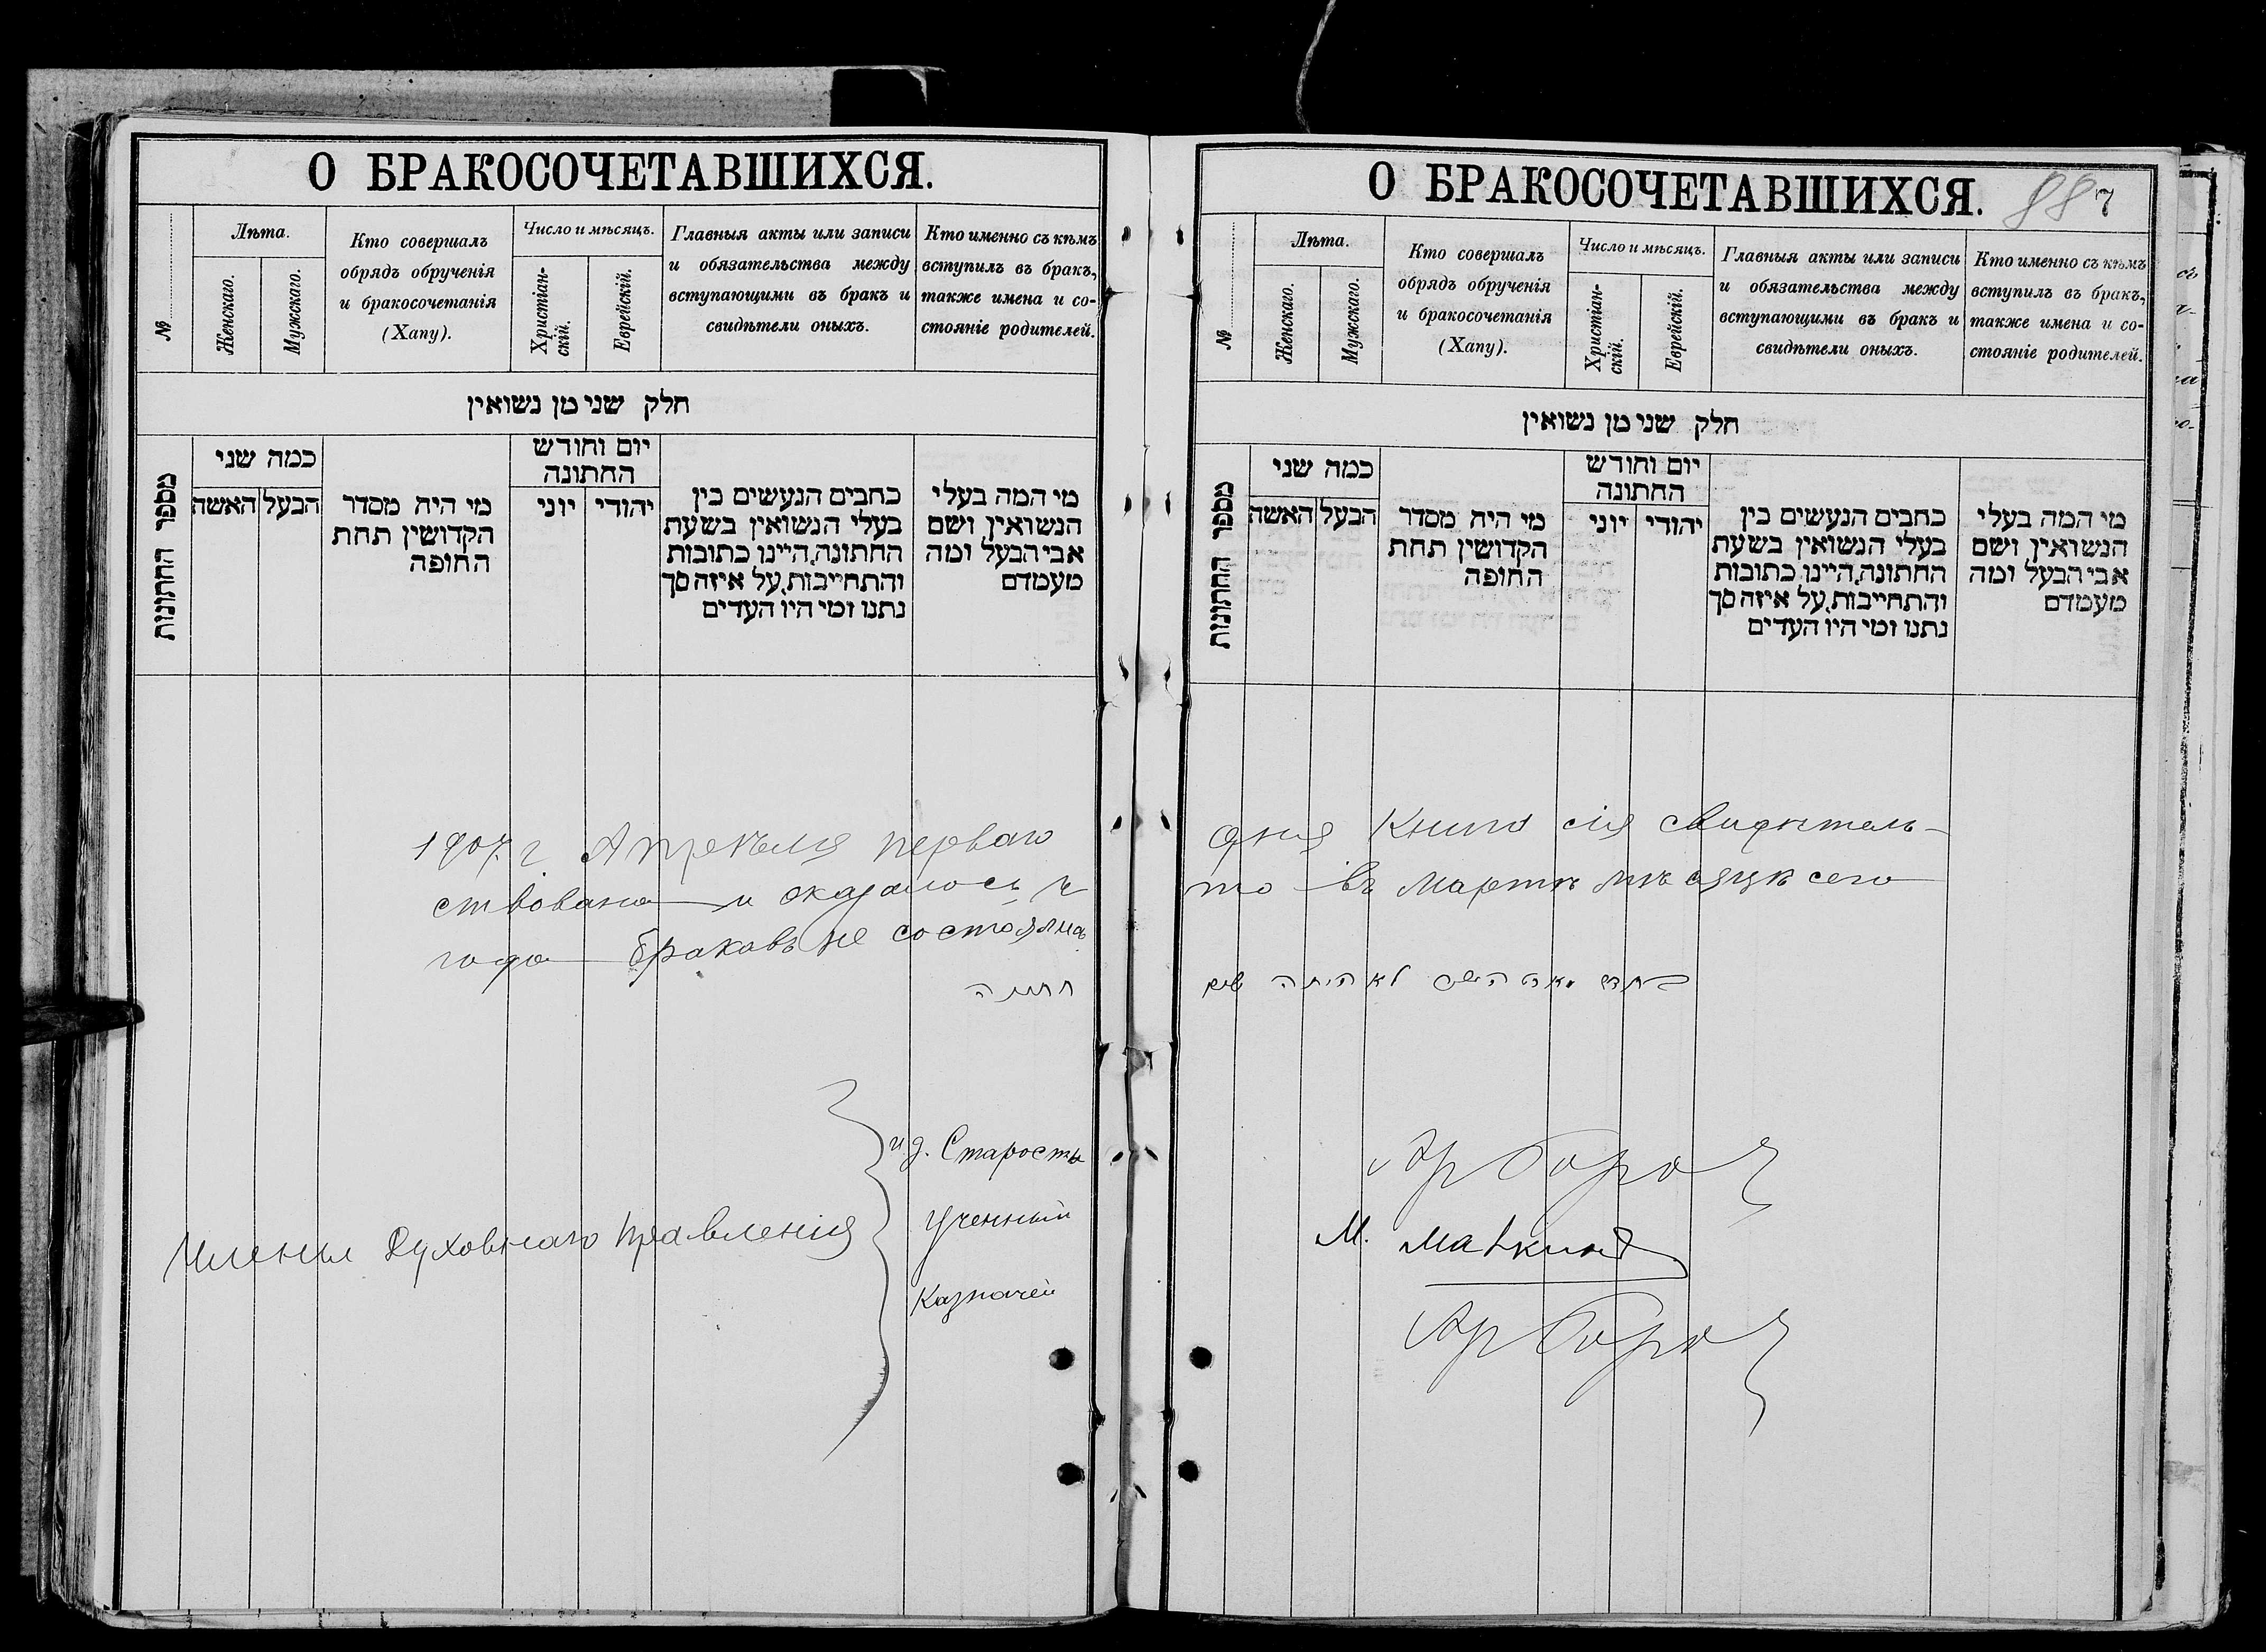 О БРАКОСОЧЕТАВШИХСЯ.
№
Лѣта.
Женскаго.
Мужскаго.
Кто совершалъ
обрядъ обрученія
и бракосочетанія
(Хапу).
Число и мѣсяцъ.
Христіан-
скій.
Еврейскій.
Главныя акты или записи
и обязательства между
вступающими въ бракъ и
свидѣтели оныхъ.
Кто именно съ кѣмъ
вступилъ въ бракъ,
также имена и со-
стояніе родителей.
חלק שני מן נשואין
מספר החתונות
כמה שני
הבעל
האשה
מי היה מסדר
הקדושין תחת
החופה
יום וחודש
החתונה
יהודי
יוני
כתבים הנעשים בין
בעלי הנשואין בשעת
החתונה, היינו כתובות
והתחייבות, על איזה סך
נתנו ומי היו העדים
מי המה בעלי
הנשואין ושם
אבי הבעל ומה
מעמדם
1907 г. Апрѣля перваго
ствована и оказалось, ч
года браковъ не состоялись
חתונה
Члены Духовнаго Правленія
и. д. Старосты
Ученный
Казначей
О БРАКОСОЧЕТАВШИХСЯ.
88 7
№
Лѣта.
Женскаго.
Мужскаго.
Кто совершалъ
обрядъ обрученія
и бракосочетанія
(Хапу).
Число и мѣсяцъ.
Христіан-
скій.
Еврейскій.
Главныя акты или записи
и обязательства между
вступающими въ бракъ и
свидѣтели оныхъ.
Кто именно съ кѣмъ
вступилъ въ бракъ,
также имена и со-
стояніе родителей.
חלק שני מן נשואין
מספר החתונות
כמה שני
הבעל
האשה
מי היה מסדר
הקדושין תחת
החופה
יום וחודש
החתונה
יהודי
יוני
כתבים הנעשים בין
בעלי הנשואין בשעת
החתונה, היינו כתובות
והתחייבות, על איזה סך
נתנו ומי היו העדים
מי המה בעלי
הנשואין ושם
אבי הבעל ומה
מעמדם
дня Книга сія свидѣтель-
то въ Мартѣ мѣсяцѣ сего
בחדש מארט לא היתה שום
М.